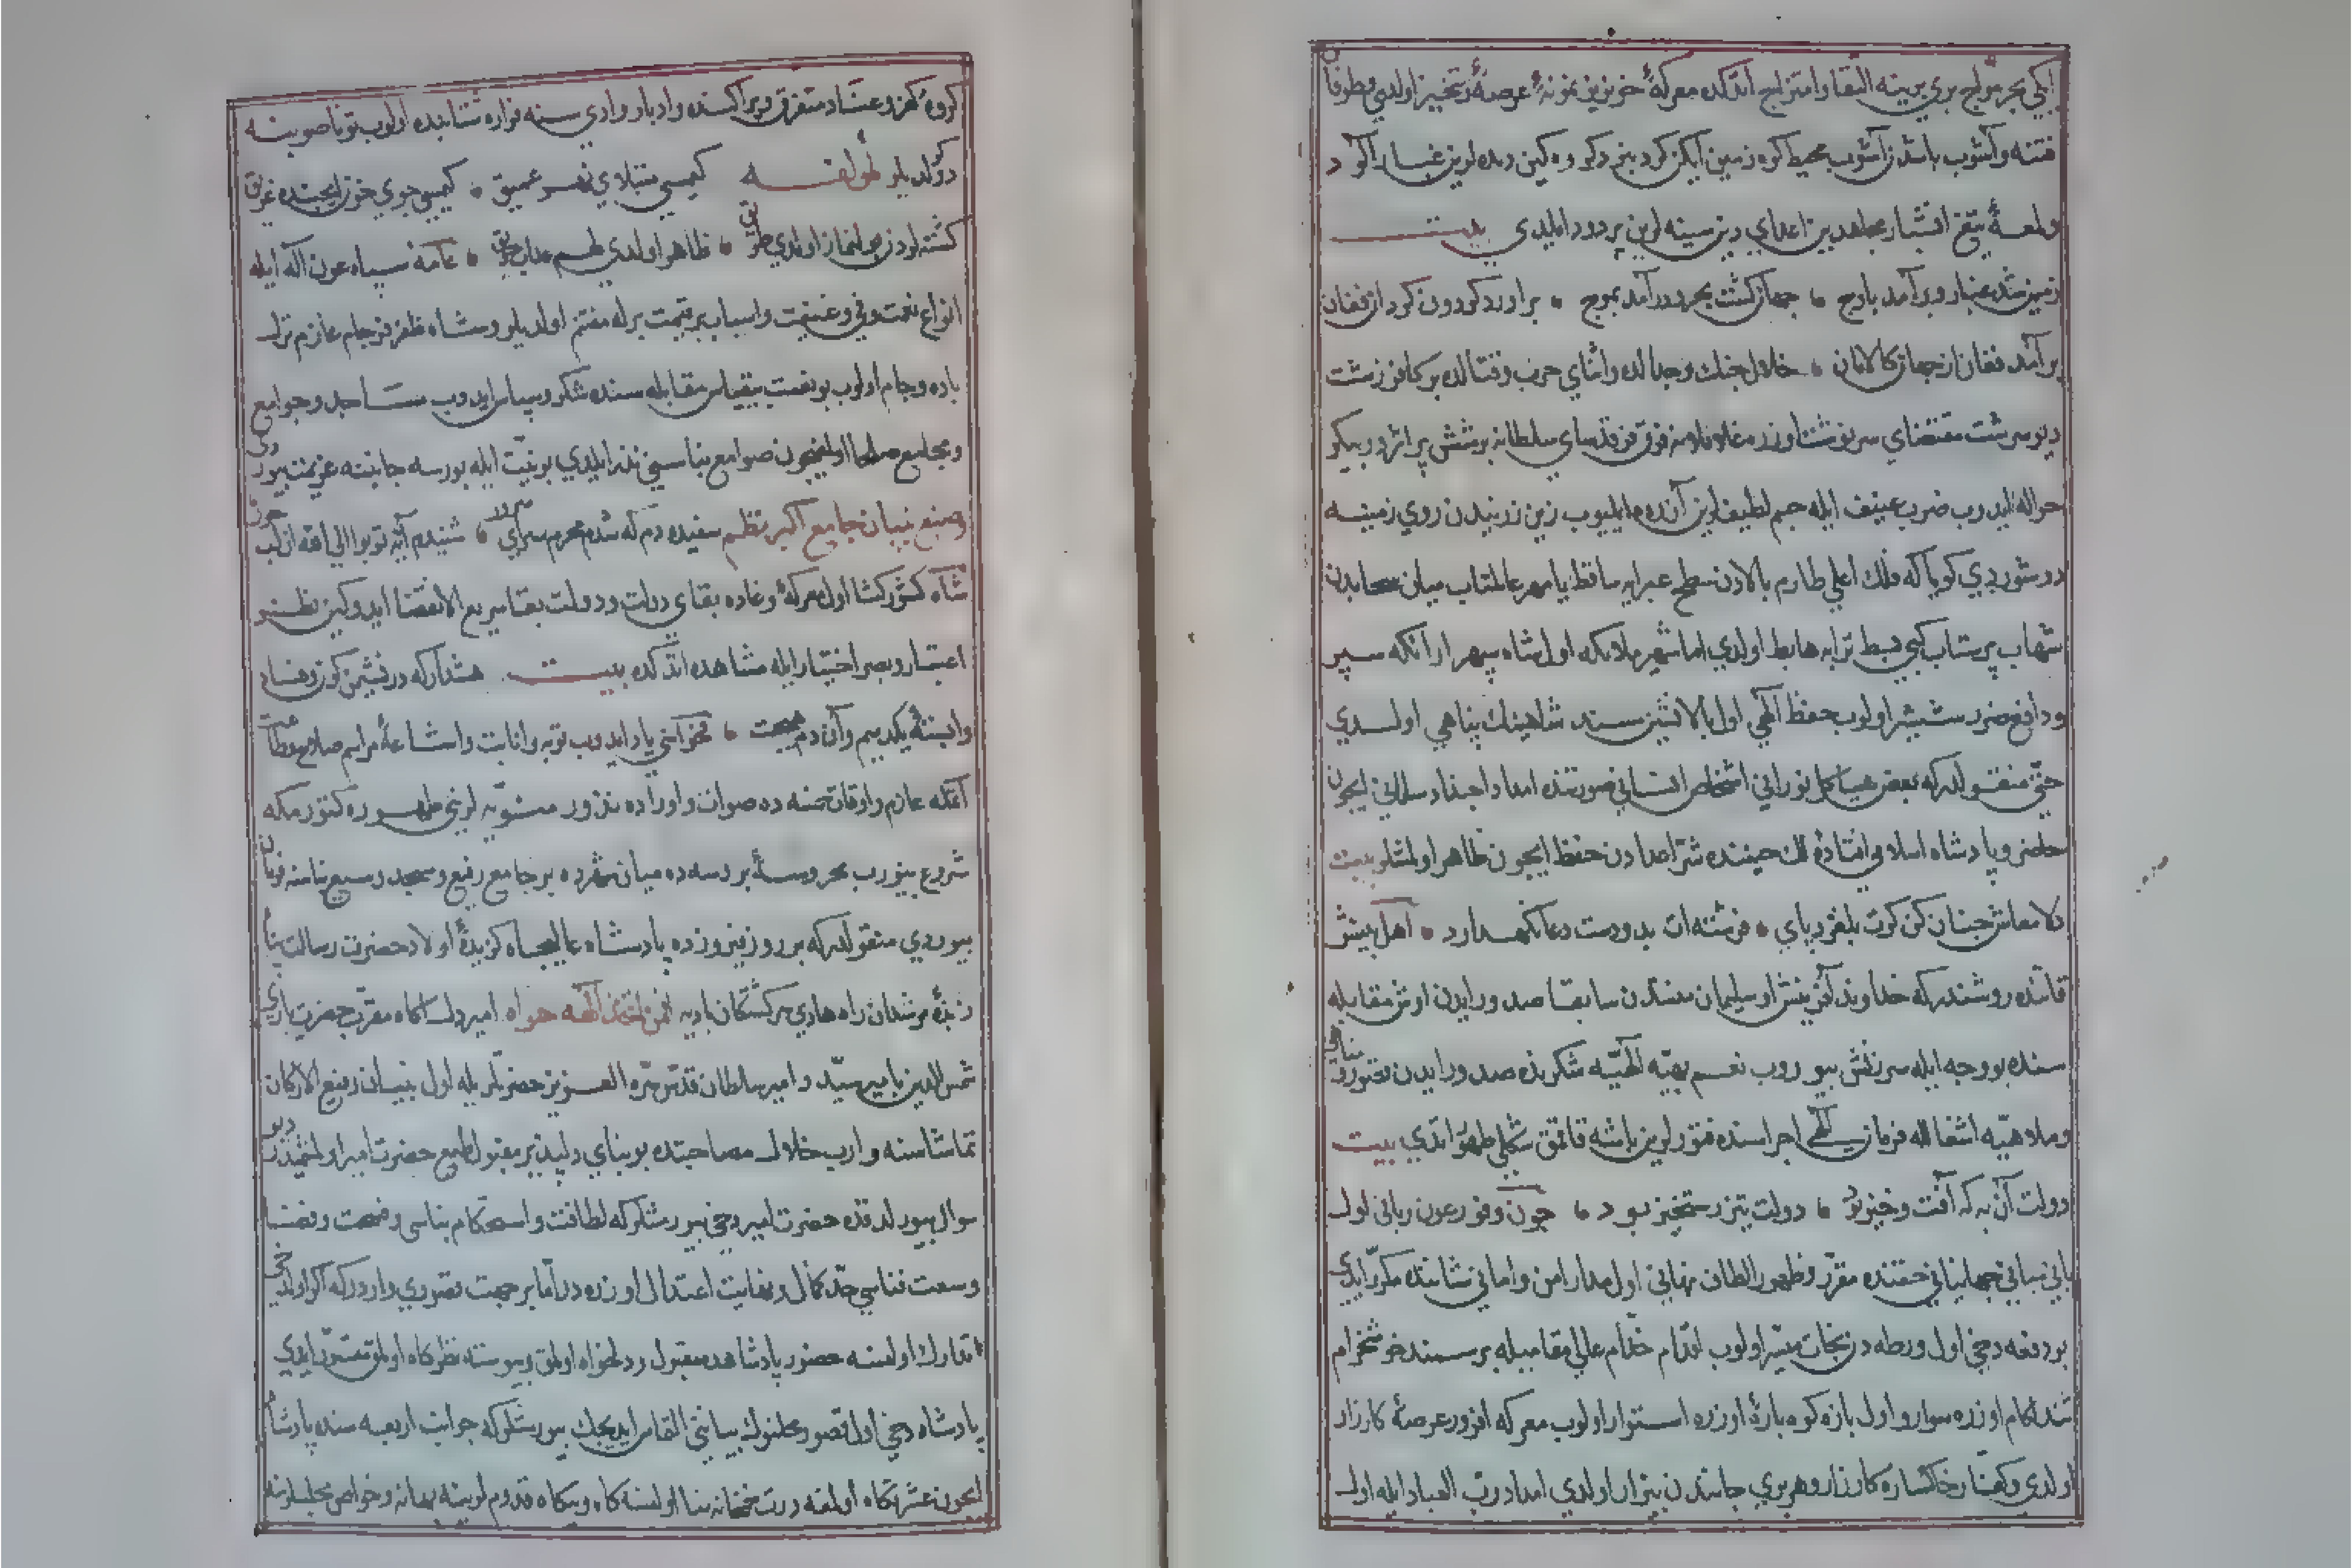 ایکی بحر مواج بری برینه التقا و امتزاج اتدکده معرکهٔ خونریز نمونهٔ عرصهٔ رستخیز اولدی و طوفان
فتنه و آشوب محیط کوه زمین کرد کین دیده لرین غبار
و لمعهٔ تیغ مجاهدین اعدای دین سینه لرین پر دود ایلدی بیت
زمین شد غبار و برآمد باوج • جهان کشت بحر و درآمد بموج • برآورد کردون کرد از فغان
برآمد فغان از جهان کالامان • خلال جنك و جدالده و اثنای حرب و قتالده بر کافر زشت
دیو سرشت مقتضای سرنوشت اوزره فرق فرقدسای سلطانه بر شش پر
حواله ایدوب ضرب عنیف ایله جسم لطیفلرین آزرده ایلیوب زین زریندن روی زمینه
دوشوردی کویا که فلك اعلی طارم بالادن سطح غبرایه ساقط یا مهر عالمتاب میان سحابدن
شهاب پرشتاب کبی هبط ترابه هابط اولدی اما شهپر ملائکه اول شاه سپهر ارائکه سپر
و دافع ضرر شمشیر اولوب حفظ الهی اول بالانشین مسند شاهینك پناهی اولدی
حتی منقولدر که بعض هیاکل نورانی اشخاص انسانی صورتنده امداد اجناد سلطانی ایچون
حاضر و پادشاه اسلامی افتاده لك حیننده شر اعدادن حفظ ایچون ظاهر اولمشلر بیت
دلا معاش چنان کن کرت بلغزد پای • فرشته ات بدو دست دعا نکهدارد • اهل بینش
قاتنده روشندر که خداوند آفرینش او سلیمان مسندن سابقا صدور ایدن مقابله
سنده بو وجه ایله سرزنش بیوروب نعم بهیهٔ الهیه شکرنده صدور ایدن قصور و مناهی
و ملاهیه اشغالله فرمان الهی اجراسنده فتورلرین باشه قاقمق شکلی ظهور اتدی بیت
دولت آن به که آفت و خیز بود • دولت تیز رستخیز بود • چون وفور عون ربانی اول
بانی مبانی جهانبانی حقنده مقرر و ظهور الطاف نهانی اول مدار امن و امانی شاننده مکرر ایدی
بو دفعه دخی اول ورطه دن نجات میسر اولوب اقدام خدام عالی مقامیله بر سمند خوشخرام
تندکام اوزره سوار و اول باره کوه پاره اوزره استوار اولوب معرکه افروز عرصهٔ کارزار
اولدی و کفار خاکسار کارزار و هر بری جانندن بیزار اولدی امداد رب العباد ایله اول
کروه کفر و عناد متفرق و پراکنده و ادبار وادیسنه فراره شتابنده اولوب تونا صوینه
دوکلدیلر لمؤلفه کیمسی مبتلای نهر عمیق • کیمسی جوی خون ایچنده غریق
کشته لردن بولنماز اولدی طریق • ظاهر اولدی لهم عذاب حریق • عامهٔ سپاه عون اله ایله
انواع نعمت وفی و غنیمت و اسباب پرقیمت برله مغتنم اولدیلر و شاه ظفرفرجام عازم ترك
باده و جام اولوب بو نعمت بیقیاس مقابله سنده شکر و سپاس ایدوب مساجد و جوامع
و مجامع صلحا اولمغچون صوامع بناسنی نذر ایلدی بو نیت ایله بورسه جانبنه عزیمت بیوردی
و صنع بنیان جامع اکبر نظم سفیده دم که شدم محرم سرای سرور • شنیدم آیه توبوا الی الله از لب حور
شاه کشورکشا اول معرکهٔ وغاده بقای دولت و دولت بقا سریع الانقضا ایدوکین نظر
اعتبار و بصر اختیار ایله مشاهده اتدکده بیت هشدار که در نشیمن کون و فساد
وابستهٔ یکدمیم و آن دم هیچست • فحواسنی یاد ایدوب توبه و انابت و اشاعهٔ مراسم صلاح و طاعت
اتمکه عازم و اوقات خمسه ده صلوات و اوراده نذور منویه لرینی ظهوره کتورمکه
شروع بیوروب محروسهٔ بروسه ده میان شهرده بر جامع رفیع و مسجد وسیع بناسنه فرمان
بیوردی منقولدر که بر روز فیروزده پادشاه عالیجاه کزیدهٔ اولاد حضرت رسالت پناه
زبدهٔ مرشدان راه هادی سرکشتکان بادیهٔ فمن اتخذ الهه هواه امیر دل آکاه مقرب حضرت باری
شمس الدین یا میر سید و امیر سلطان قدس سره العزیز حضرتلریله اول بنیان رفیع الارکان
تماشاسنه واروب خلال مصاحبتده بو بنای دلپذیر مقبول طبع حضرت امیر اولمشمیدر دیو
سوال بیورلدقده حضرت امیر دخی بیورمشلر که لطافت و استحکام بناسی و فسحت و فضا
و وسعت فناسی حد کمال و نهایت اعتدال اوزره در اما بر جهت قصوری وار در که اکر اول دخی
تدارك اولنسه حضور پادشاهده مقبول و دلخواه اولمق و پیوسته نظرکاه اولمق مقرر ایدی
پادشاه دخی اول قصور محلنوك بیاننی التماس ایدیجك بیورمشلر که جوانب اربعه سنده پادشاه
ایچون عشرتکاه اولمغه درت میخانه بنا اولنسه کاه و بیکاه قدوملرینه بهانه و خواص مجلسلرینه